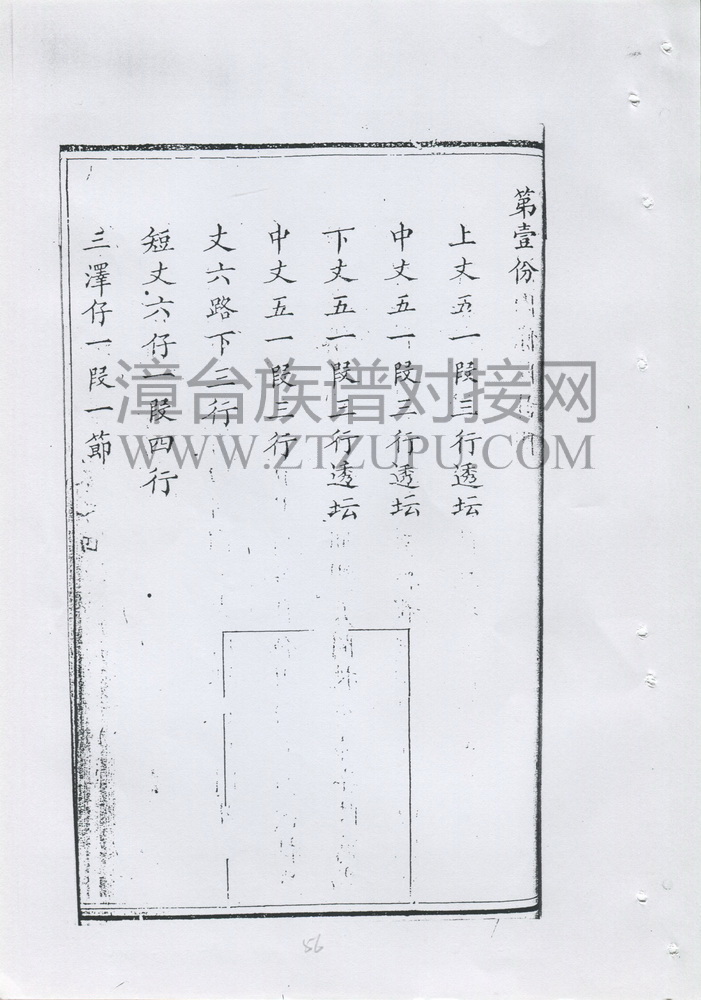 第壹份
上丈五一段三行透坛
中丈五一段三行透坛
下丈五一段三行透坛
中丈五一段三行
丈六路下三行
短丈六仔一段四行
三澤仔一段一節
漳台族谱对接网
WWW.ZTZUPU.COM
56